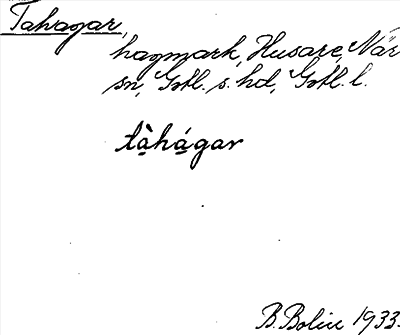 Tahagar,
hagmark, Husare, När
sn, Gotl. s. hd, Gotl. l.
tà̱há̱gar
B. Bolin 1933.